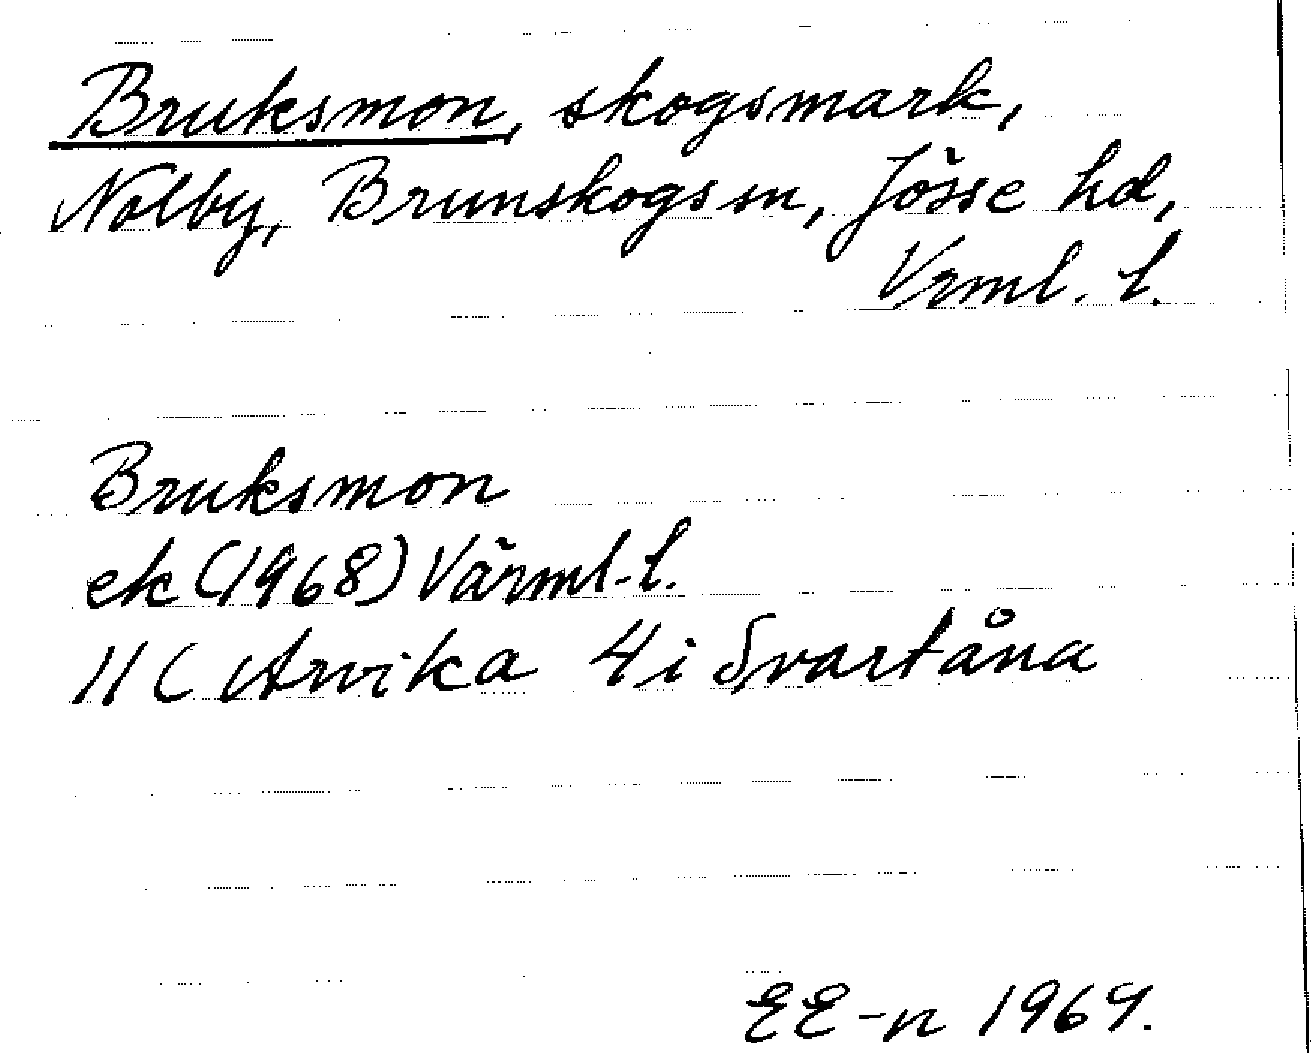 Bruksmon, skogsmark,
Nolby, Brunskogs sn, Jösse hd,
Vrml. l.
Bruksmon
ek (1968) Värml. l.
11 C Arvika 4 i Svartåna
EE-n 1969.